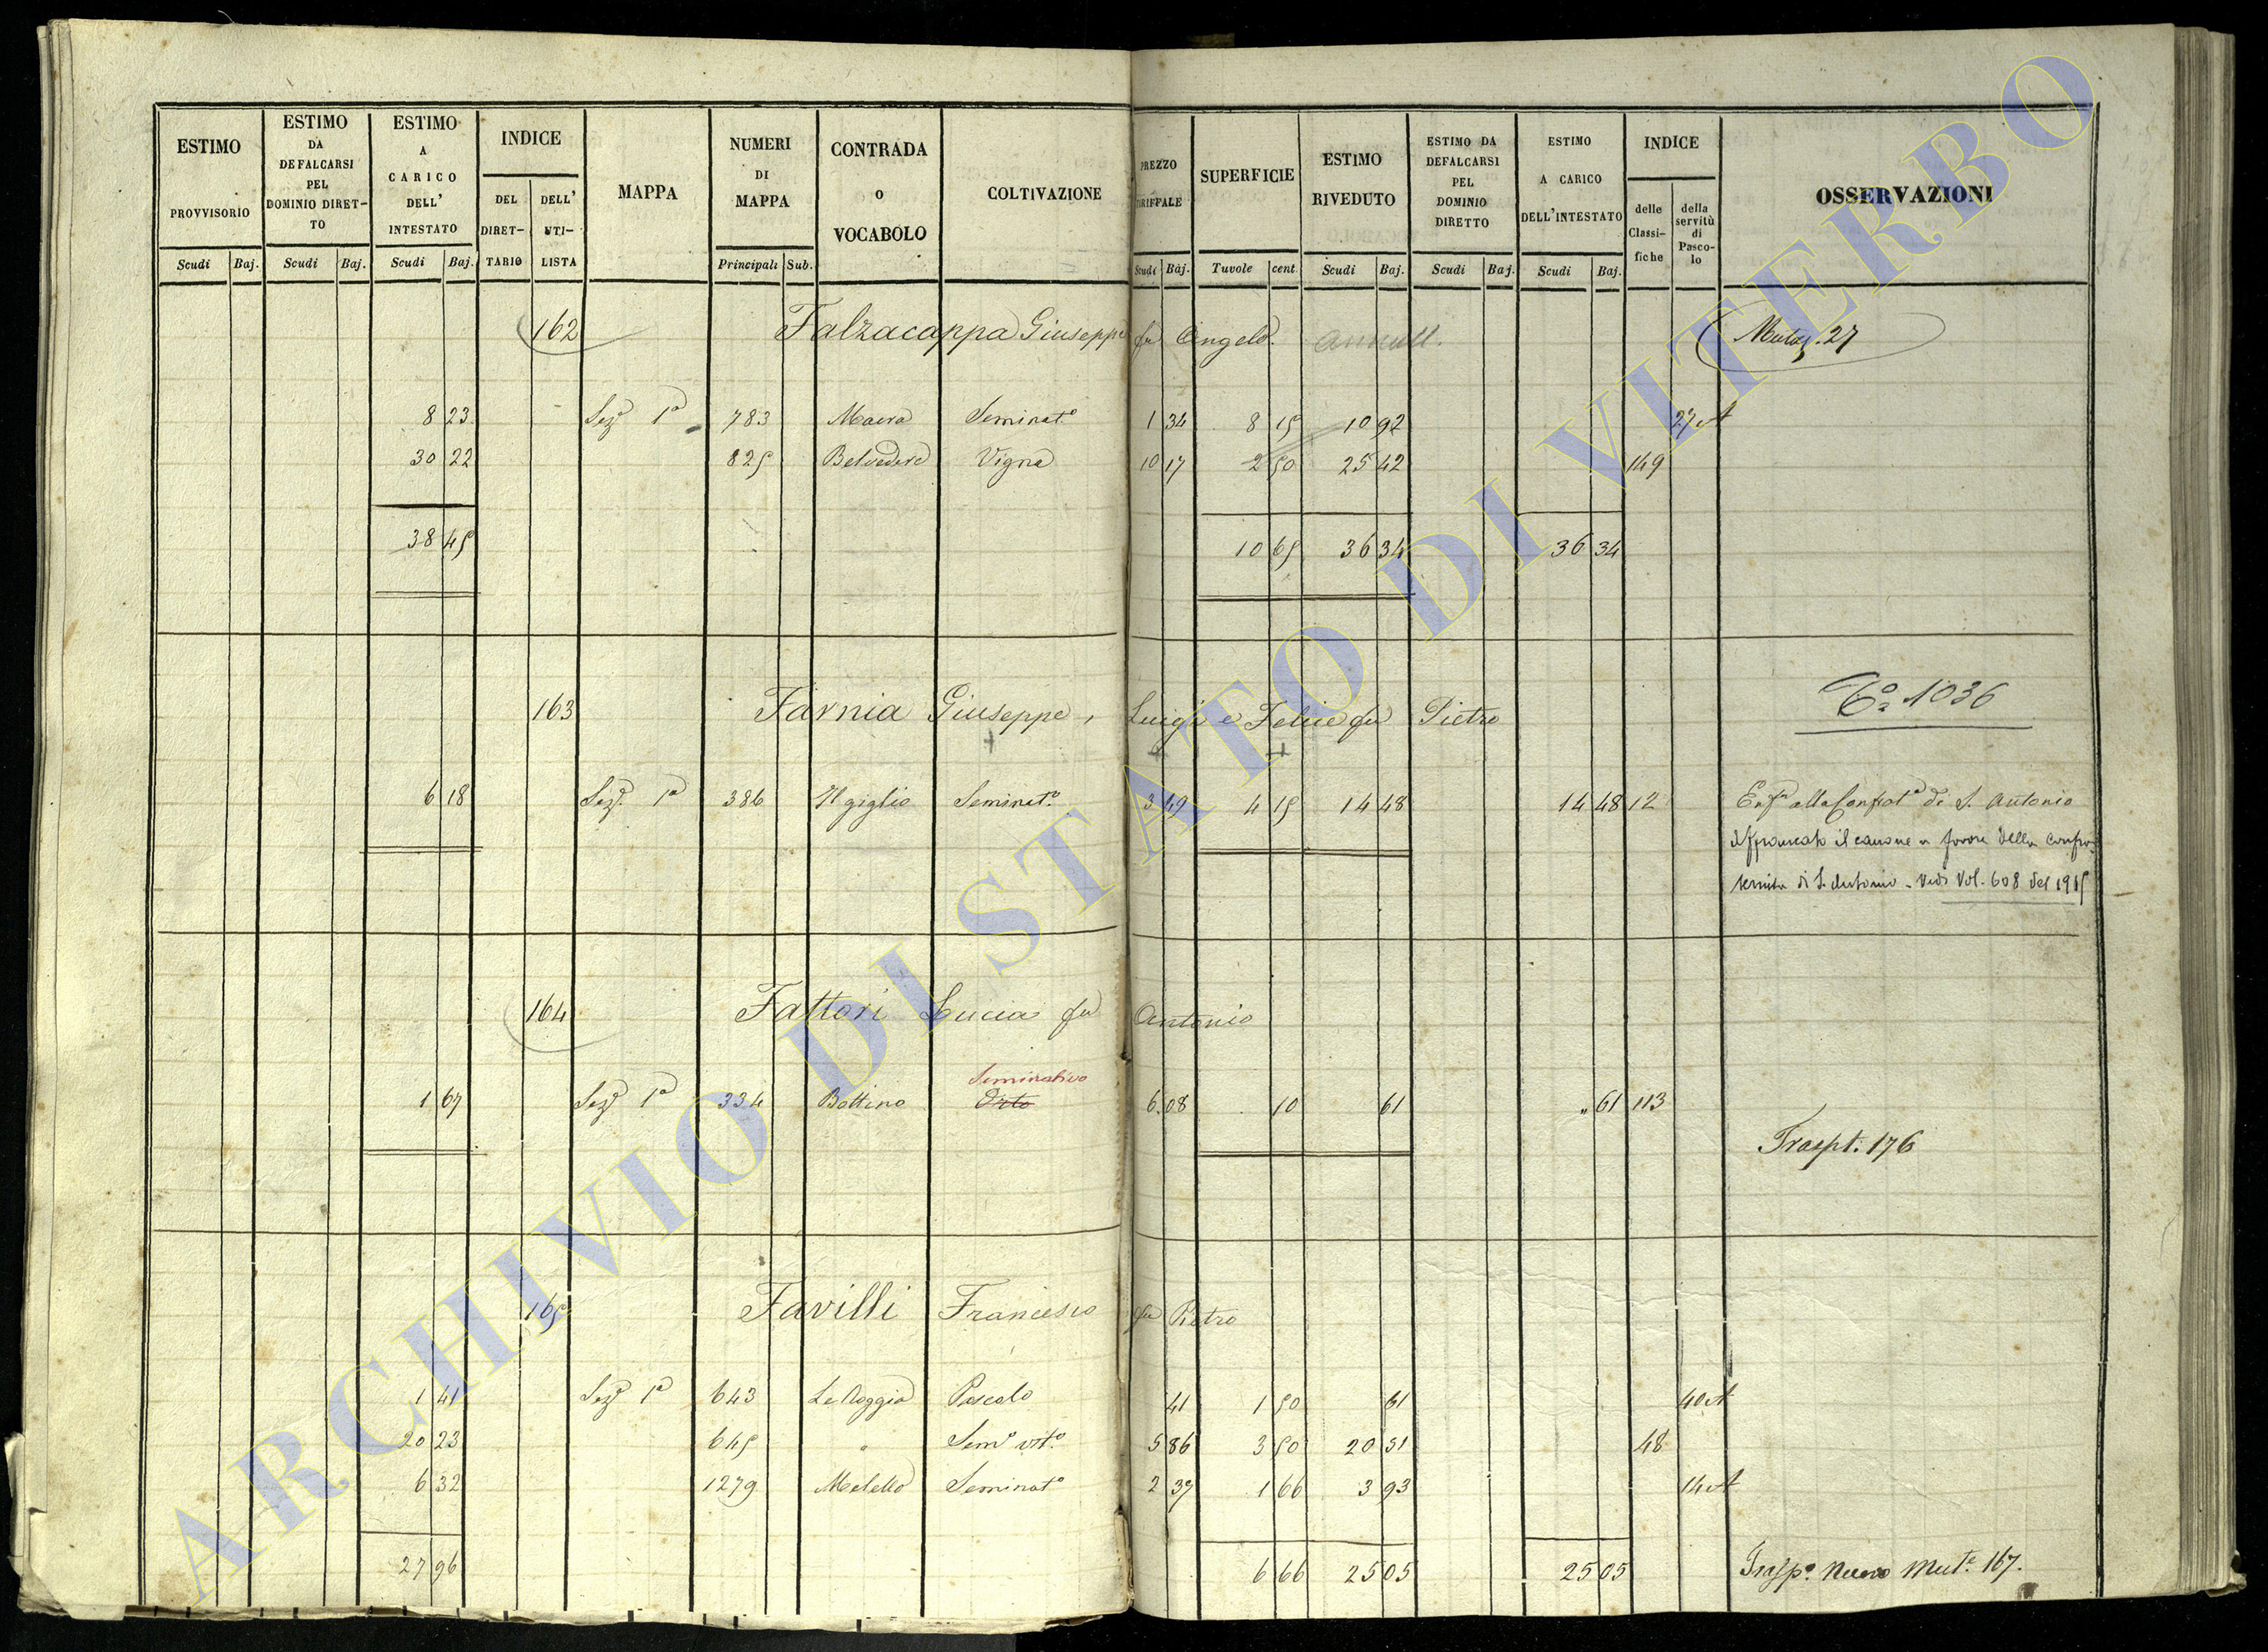 ESTIMO PROVVISORIO
ESTIMO DA DEFALCARSI PEL DOMINIO DIRET-TO
ESTIMO A CARICO DELL' INTESTATO
INDICE
DEL DIRET-TARIO
DELL' UTI-LISTA
MAPPA
NUMERI DI MAPPA
CONTRADA o VOCABOLO
COLTIVAZIONE
PREZZO TARIFFALE
SUPERFICIE
ESTIMO RIVEDUTO
ESTIMO DA DEFALCARSI PEL DOMINIO DIRETTO
ESTIMO A CARICO DELL'INTESTATO
INDICE
delle Classi-fiche
della servitù di Pasco-lo
OSSERVAZIONI
Scudi Baj. Scudi Baj. Scudi Baj. Principali Sub. Scudi Baj. Tavole cent. Scudi Baj. Scudi Baj. Scudi Baj.
162 Falzacappa Giuseppe fu Angelo. annull. Mutaz. 27
8 23 Sez.e 1a 783 Macra Seminat.o 1 34 8 15 10 92 27 A
30 22 825 Belvedere Vigna 10 17 2 50 25 42 149
38 45 10 65 36 34 36 34
163 Farnia Giuseppe, Luigi e Felice fu Pietro 1036
6 18 Sez.e 1a 386 Il giglio Seminat.o 3 49 4 15 14 48 14 48 12 Enf.a alla Confrat.a di S. Antonio
Affrancato il canone a favore della Confra-
ternita di S. Antonio - Vedi Vol. 608 del 1915
164 Fattori Lucia fu Antonio
Seminativo
1 67 Sez.e 1a 334 Bottino Orto 6.08 10 61 " 61 113
Traspt. 176
165 Favilli Francesco fu Pietro
1 41 Sez.e 1a 643 Le Poggia Pascolo 41 1 50 61 40 A
20 23 645 " Sem.o vit.o 5 86 3 50 20 51 48
6 32 1279 Melello Seminat.o 2 37 1 66 3 93 14 A
27 96 6 66 25 05 25 05 Trasp.o nuovo Mut.e 167.
ARCHIVIO DI STATO DI VITERBO